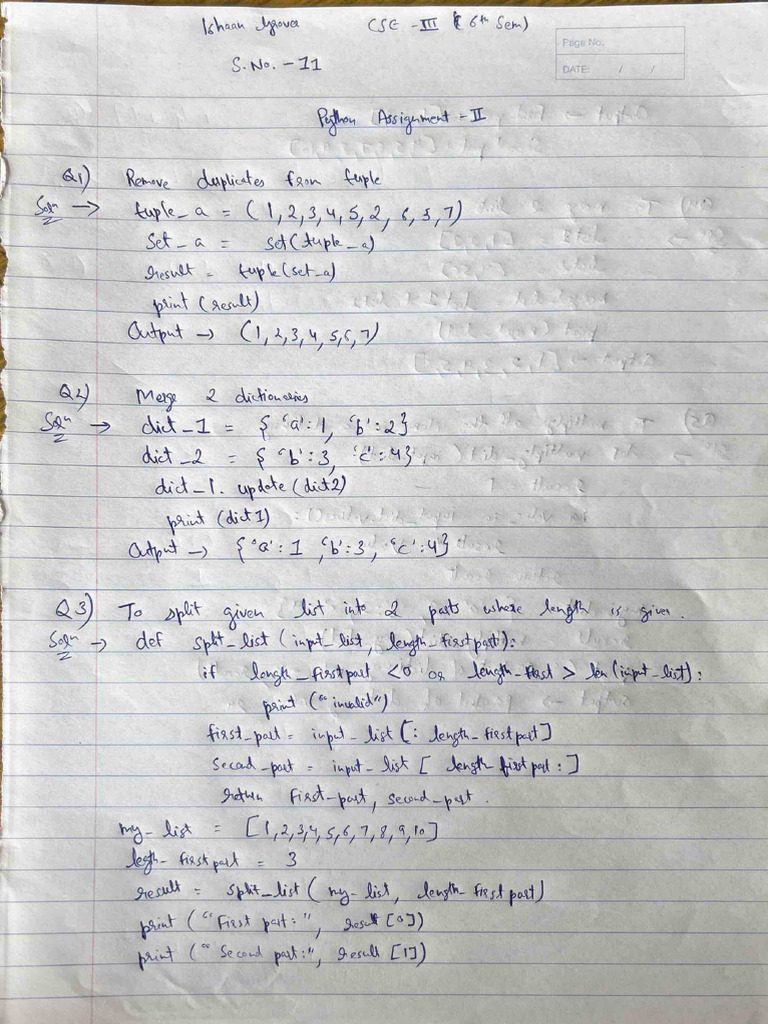 Ishaan Grover CSE - III ( 6th Sem)
Page No.
S.No. - 11
DATE: / /
Python Assignment - II
Q1) Remove duplicates from tuple
Soln → tuple_a = (1,2,3,4,5,2,6,5,7)
set_a = set(tuple_a)
result = tuple(set_a)
print (result)
Output → (1,2,3,4,5,6,7)
Q2) Merge 2 dictionaries
Soln → dict_1 = { 'a':1, 'b':2}
dict_2 = { 'b':3, 'c':4}
dict_1. update (dict2)
print (dict1)
Output → {'a':1 ,'b':3, 'c':4}
Q3) To split given list into 2 parts where length is given.
Soln → def split_list (input_list, length_firstpart):
if length_firstpart <0 or length_first > len(input_list):
print ("invalid")
first_part = input_list [: length_firstpart]
secod_part = input_list [ length_firstpart :]
return first_part, second_part.
my_list = [1,2,3,4,5,6,7,8,9,10]
legth_firstpart = 3
result = split_list( my_list, length_firstpart)
print ("First part:", result [0])
print ("Second part:", result [1])